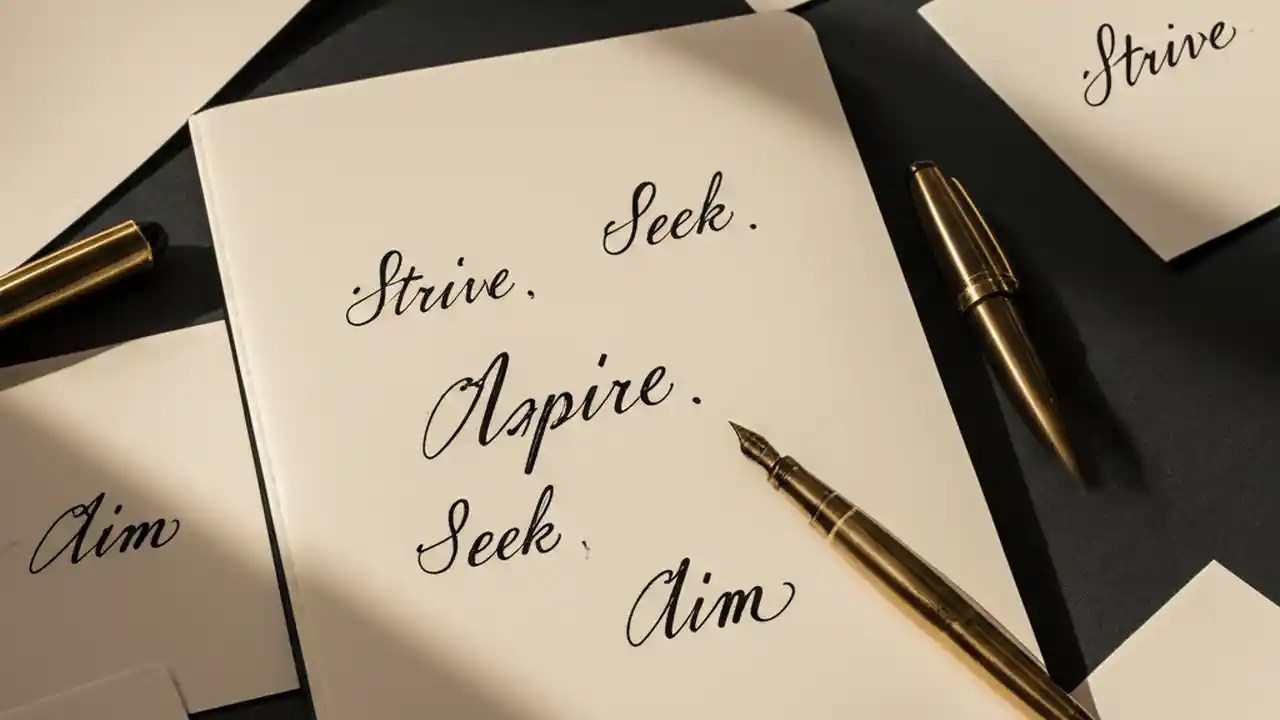 Strive
Seek.
Strive.
Aspire.
Seek.
Aim
Aim